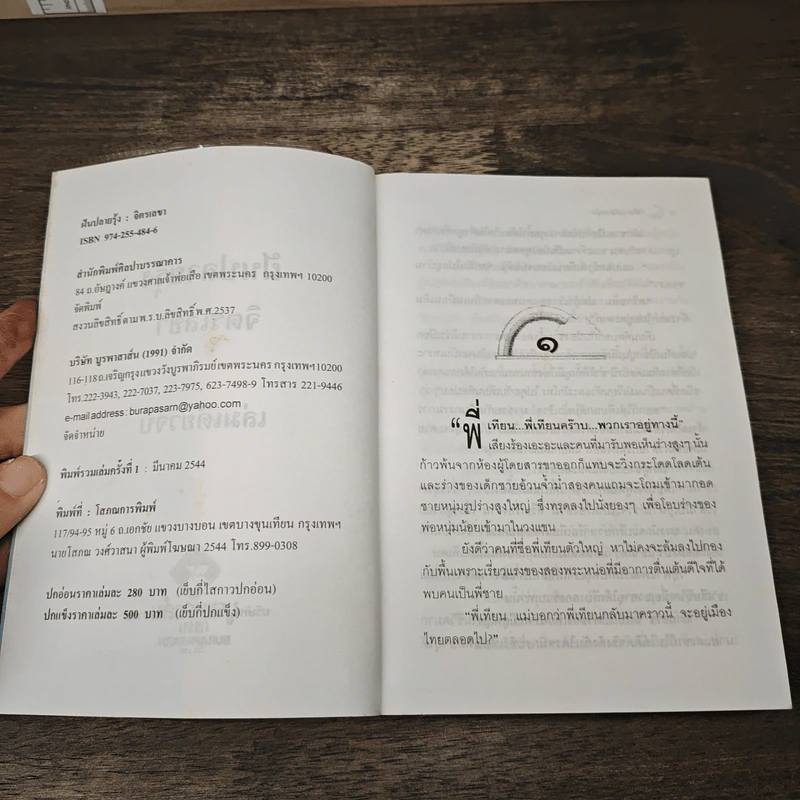 ฝันปลายรุ้ง : จิตรเลขา
ISBN 974-255-484-6
สำนักพิมพ์ศิลปาบรรณาคาร
84 ถ.อัษฎางค์ แขวงศาลเจ้าพ่อเสือ เขตพระนคร กรุงเทพฯ 10200
จัดพิมพ์
สงวนลิขสิทธิ์ตาม พ.ร.บ.ลิขสิทธิ์ พ.ศ.2537
บริษัท บูรพาสาส์น (1991) จำกัด
116-118 ถ.เจริญกรุงแขวงวังบูรพาภิรมย์ เขตพระนคร กรุงเทพฯ 10200
โทร.222-3943, 222-7037, 223-7975, 623-7498-9 โทรสาร 221-9446
e-mail address : burapasarn@yahoo.com
จัดจำหน่าย
พิมพ์รวมเล่มครั้งที่ 1 : มีนาคม 2544
พิมพ์ที่ : โสภณการพิมพ์
117/94-95 หมู่ 6 ถ.เอกชัย แขวงบางบอน เขตบางขุนเทียน กรุงเทพฯ
นายโสภณ วงศ์วาสนา ผู้พิมพ์โฆษณา 2544 โทร.899-0308
ปกอ่อนราคาเล่มละ 280 บาท (เย็บกี่ไสกาวปกอ่อน)
ปกแข็งราคาเล่มละ 500 บาท (เย็บกี่ปกแข็ง)
๑
“พี่เทียน...พี่เทียนคร๊าบ...พวกเราอยู่ทางนี้”
เสียงร้องเอะอะและคนที่มารับพอเห็นร่างสูงๆ นั้น
ก้าวพ้นจากห้องผู้โดยสารขาออกก็แทบจะวิ่งกระโดดโลดเต้น
และร่างของเด็กชายอ้วนจ้ำม่ำสองคนแถมจะโถมเข้ามากอด
ชายหนุ่มรูปร่างสูงใหญ่ ซึ่งทรุดลงไปนั่งยองๆ เพื่อโอบร่างของ
พ่อหนุ่มน้อยเข้ามาในวงแขน
ยังดีว่าคนที่ชื่อพี่เทียนตัวใหญ่ หาไม่คงจะล้มลงไปกอง
กับพื้นเพราะเรี่ยวแรงของสองพระหน่อที่มีอาการตื่นเต้นดีใจที่ได้
พบคนเป็นพี่ชาย
“พี่เทียน...แม่บอกว่าพี่เทียนกลับมาคราวนี้ จะอยู่เมือง
ไทยตลอดไป?”